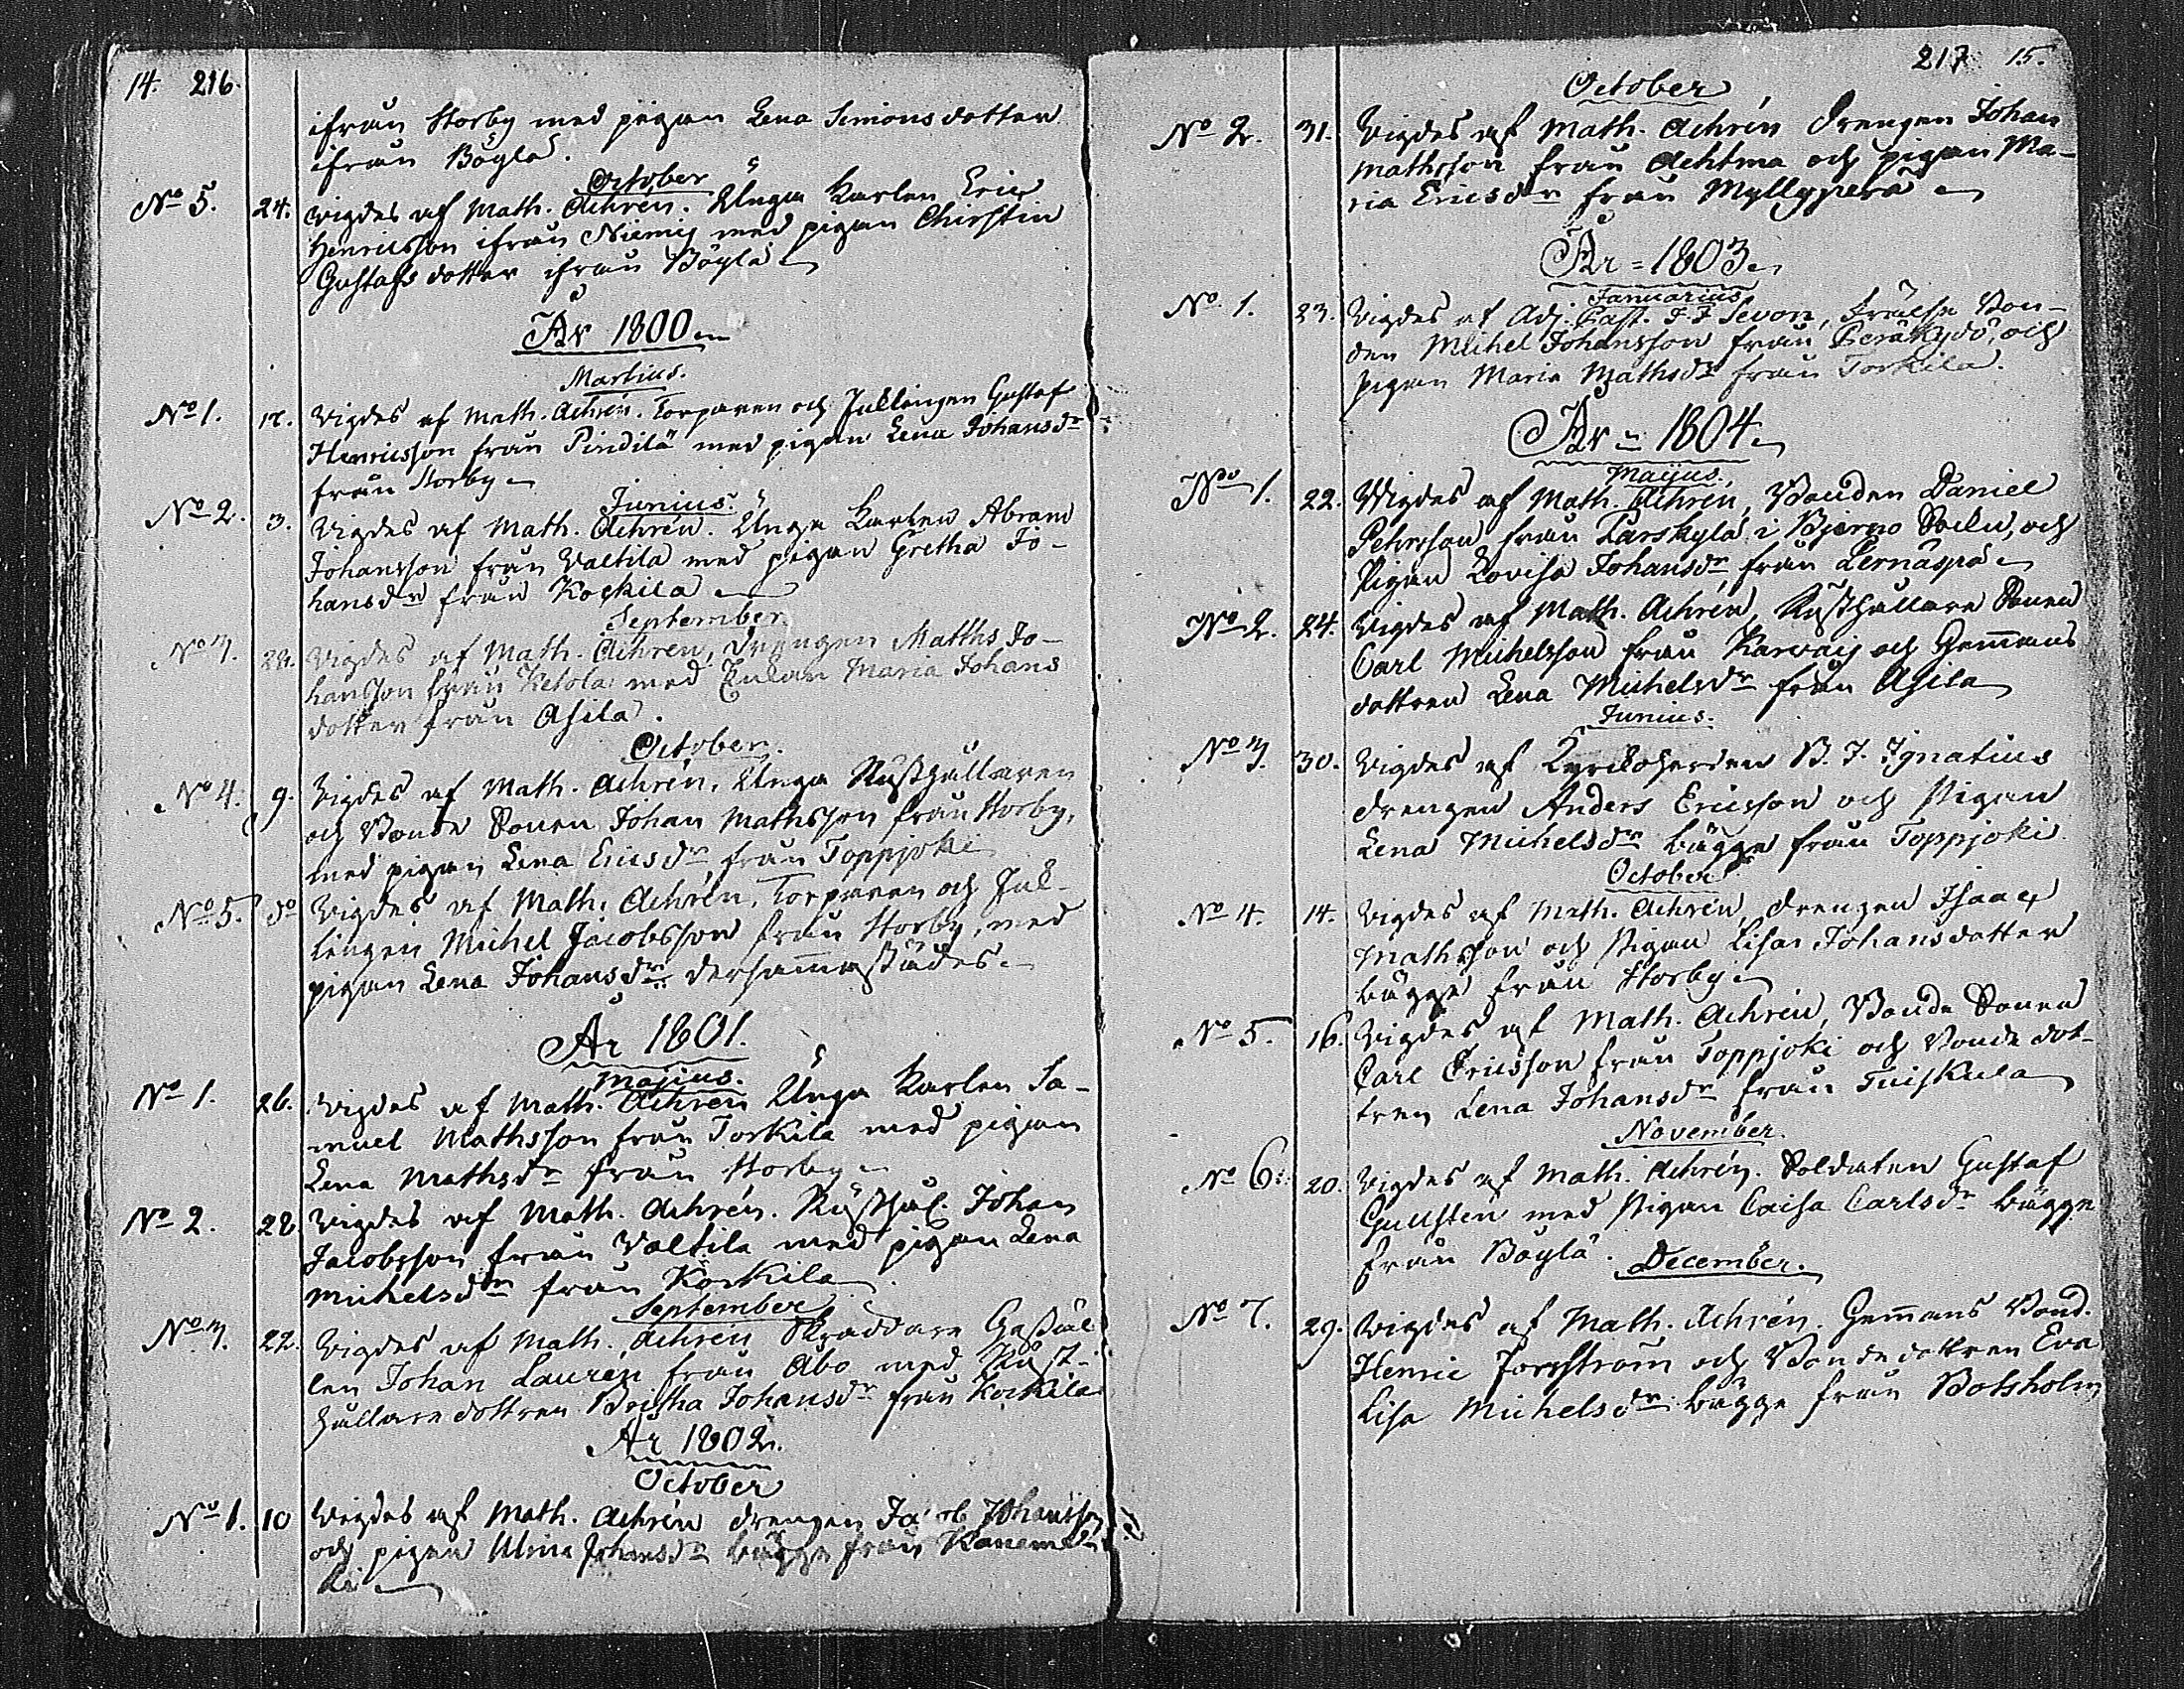 14. 216.
ifrån Storby med pigan Lena Simonsdotter
ifrån Böylä.
October
No 5. 24. Vigdes af Math. Achrén. Unga Karlen Eric
Henricsson ifrån Niemis med pigan Chirstin
Gustafsdotter ifrån Böylä
År 1800
Martius.
No 1. Vigdes af Math. Achrén. Torparen och Gustaf
Henricsson från Pindilä med pigan Lena Johansdr
från Storby
Junius.
No 2. 3. Vigdes af Math. Achrén. Unga Karlen Abram
Johansson från Valtila med pigan Gretha Jo-
hansdr från Koskila
September
No 3. 28. Vigdes af Math. Achrén, Drengen Matths Jo-
hansson från Ketola med Enkan Maria Johans
dotter från Asila.
October.
No 4. 9. Vigdes af Math. Achrén, Unga Rusthållaren
och Bonde Sonen Johan Mathsson från Storby,
med pigan Lena Ericsdr från Toppjoki
No 5. do Vigdes af Math. Achrén, Torparen och
Michel Jacobsson från Storby, med
pigan Lena Johansdr dersammastädes.
År 1801.
Majius.
No 1. 26. Vigdes af Math. Achrén Unga Karlen Sa-
muel Mathsson från Torkila med pigan
Lena Mathsdr från Storby
No 2. 28. Vigdes af Math. Achrén. Rusthål. Johan
Jacobsson från Valtila med pigan Lena
Michelsdr från Koskila
September
No 3. 22. Vigdes af Math. Achrén Skräddare Gesäl
len Johan Laurén från Åbo med Rust-
hållare dottren Britha Johansdr från Koskila
År 1802.
October
No 1. 10 Vigdes af Math. Achrén drengen Jacob Johansson
och pigan Ulrica Johansdr bägge från
ki
217 15.
October
No 2. 31. Vigdes af Math. Achrén Drengen Johan
Mathsson från Achtma och pigan Ma-
ria Ericsdr från Myllyperä
År = 1803
Januarius
No 1. 23. Vigdes af Adj. Past. J. F Sevon, Frälse Bon-
den Michel Johansson från Peräkydö, och
pigan Maria Mathsdr från Torkila.
År = 1804
Majus.
No 1. 22. Vigdes af Math. Achrén, Bonden Daniel
Petersson från Parskylä i Bjerno Sokn, och
Pigan Lovisa Johansdr från Lernäspä
No 2. 24. Vigdes af Math. Achrén, Rusthållare Sonen
Carl Michelsson från Karvais och Hemmans
dottren Lena Michelsdr från Asila
Junius.
No 3. 30. Vigdes af Kyrkoherden B. J. Ignatius
drengen Anders Ericsson och Pigan
Lena Michelsdr bägge från Toppjoki
October
No 4. 14. Vigdes af Math. Achrén, drengen Isaac
Mathsson och Pigan Lisa Johansdotter
bägge från Storby
No 5. 16. Vigdes af Math. Achrén, Bonde Sonen
Carl Ericsson från Toppjoki och Bonde dot-
tren Lena Johansdr från Tuiskula
November.
No 6. 20. Vigdes af Math. Achrén. Soldaten Gustaf
Gullsten med Pigan Caisa Carlsdr bägge
från Böylä.
December.
No 7. 29. Vigdes af Math. Achrén. Hemmans Bond.
Henric Forsström och Bonde dottren Eva
Lisa Michelsdr bägge från Botsholm